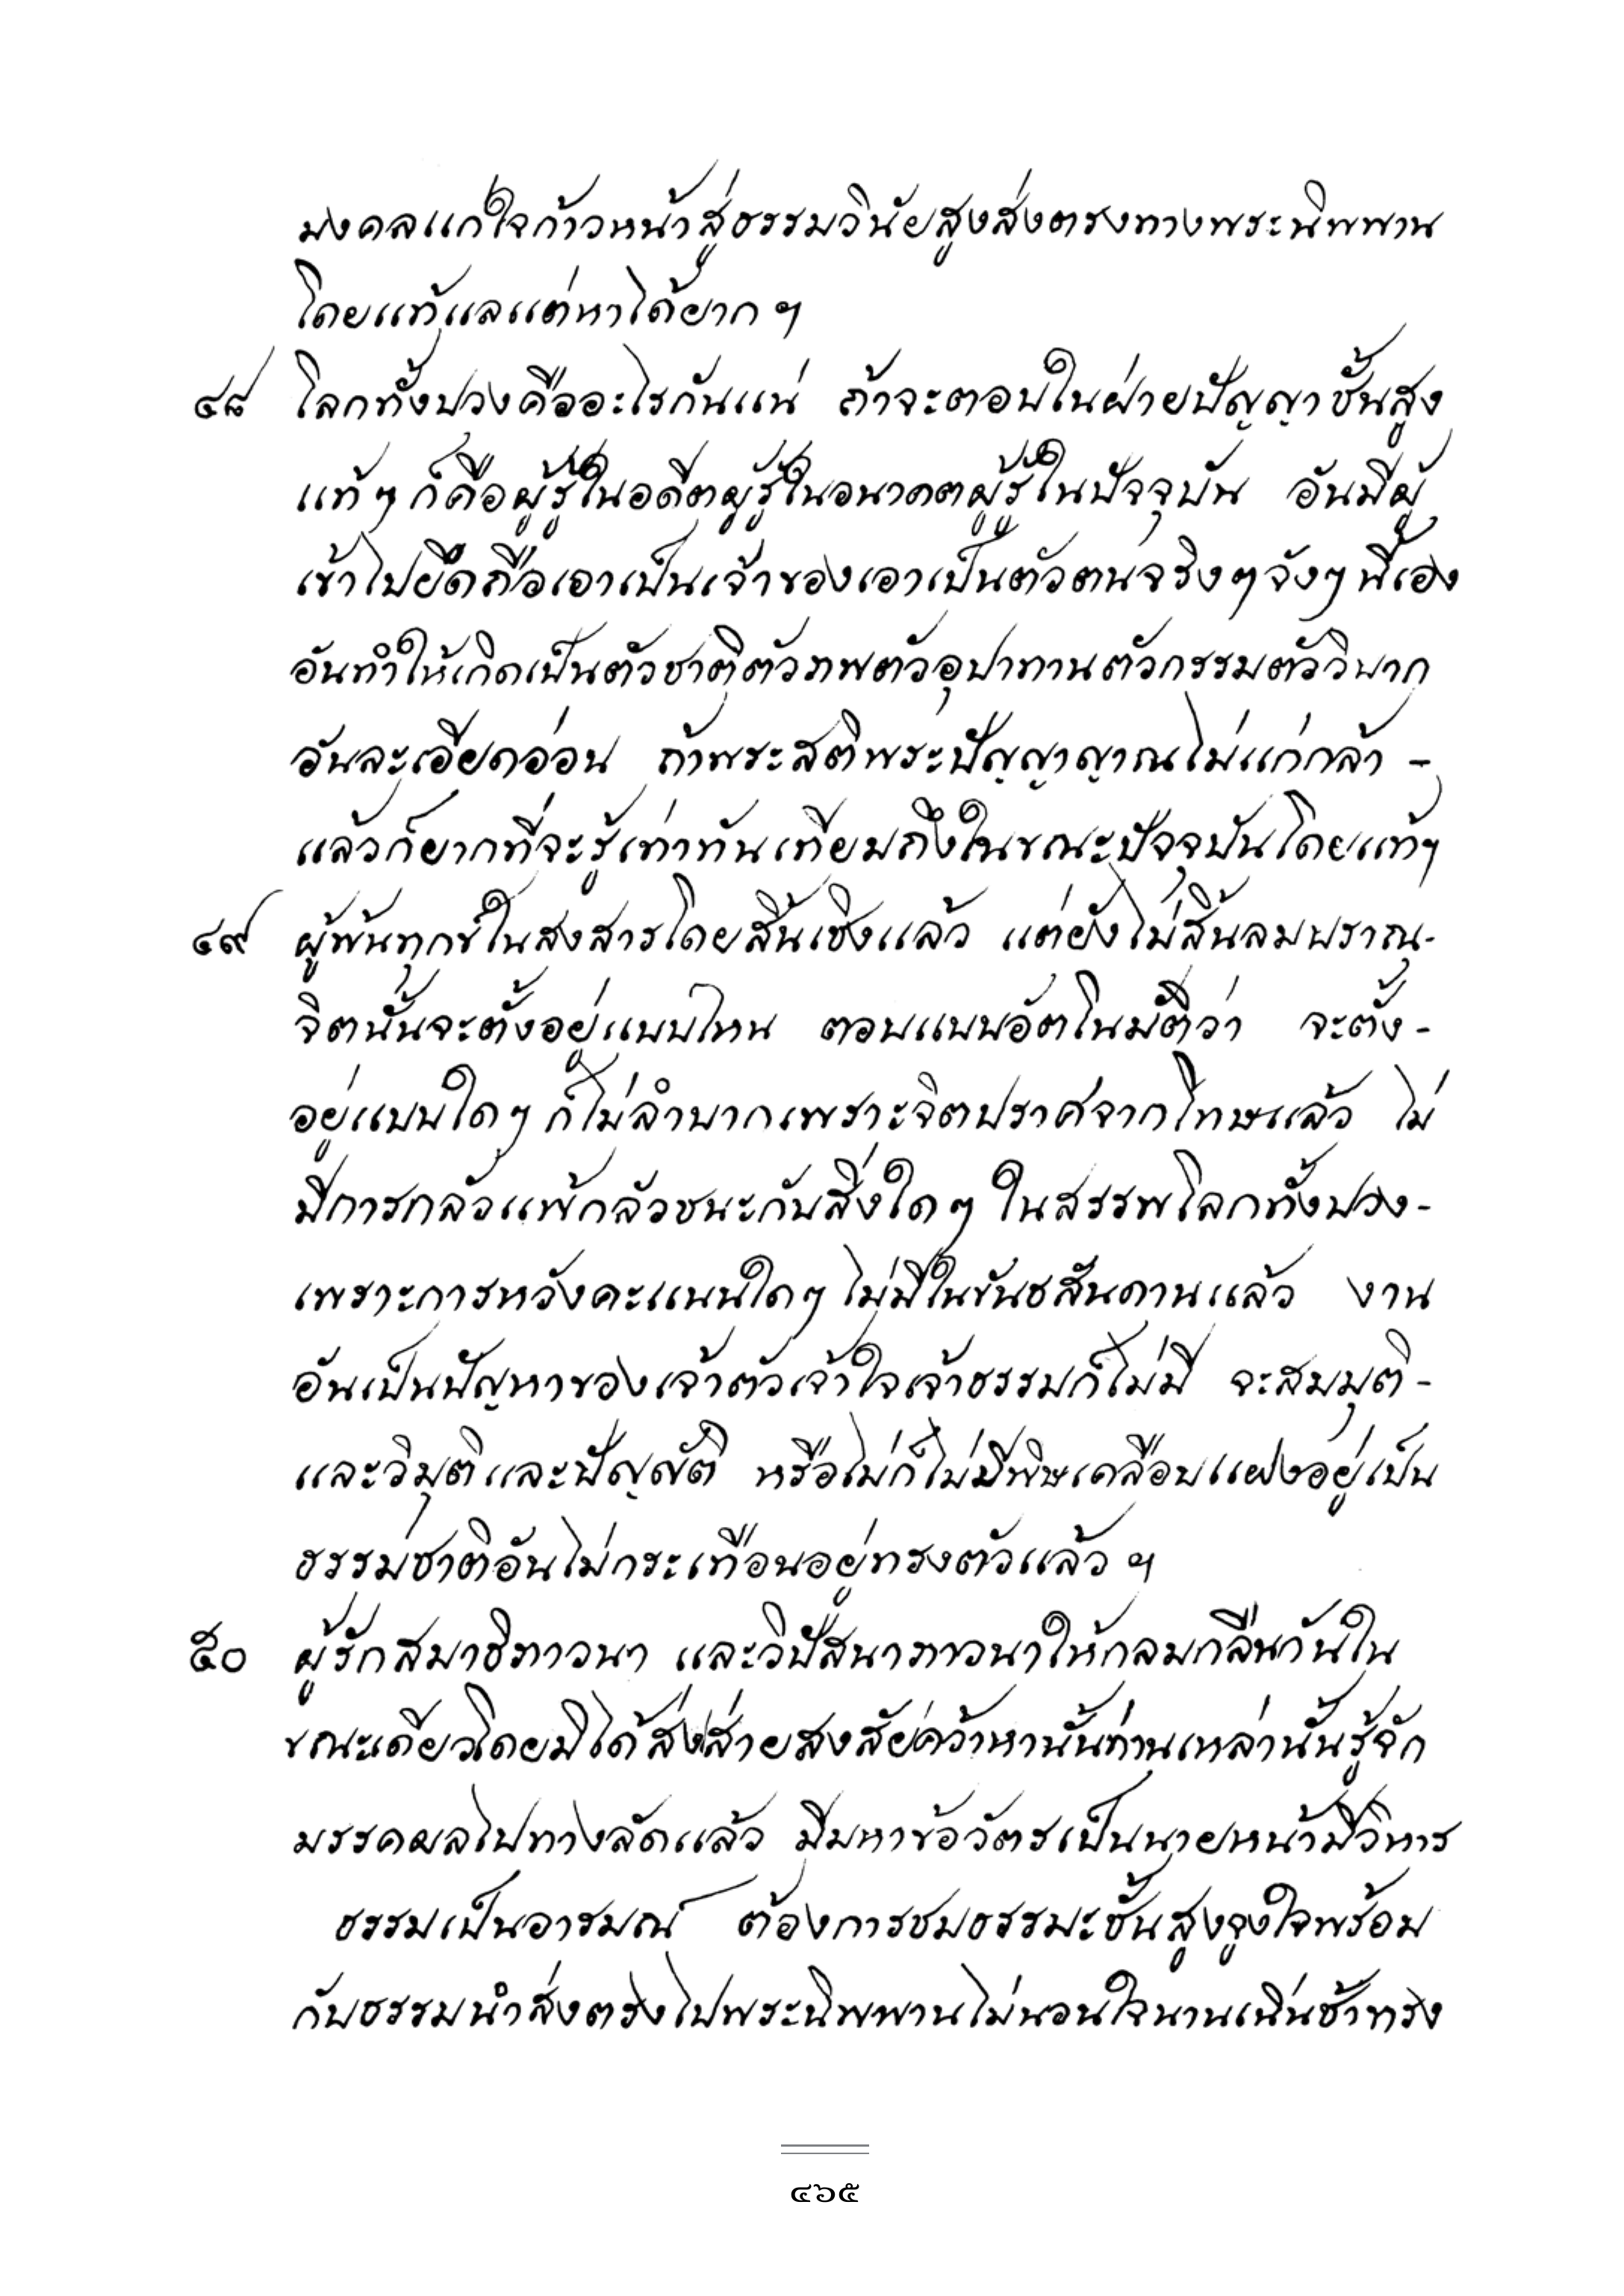 มงคลแก่ใจก้าวหน้าสู่ธรรมวินัยสูงส่งตรงทางพระนิพพาน
โดยแท้แลแต่หาได้ยาก ฯ
๔๘ โลกทั้งปวงคืออะไรกันแน่ ถ้าจะตอบในฝ่ายปัญญาชั้นสูง
แท้ๆ ก็คือผู้รู้ในอดีตผู้รู้ในอนาคตผู้รู้ในปัจจุบัน อันมีผู้
เข้าไปยึดถือเอาเป็นเจ้าของเอาเป็นตัวตนจริงๆจังๆ นี้เอง
อันทำให้เกิดเป็นตัวชาติตัวภพตัวอุปาทานตัวกรรมตัววิบาก
อันละเอียดอ่อน ถ้าพระสติพระปัญญาญาณไม่แก่กล้า -
แล้วก็ยากที่จะรู้เท่าทันเทียมถึงในขณะปัจจุบันโดยแท้ฯ
๔๙ ผู้พ้นทุกข์ในสงสารโดยสิ้นเชิงแล้ว แต่ยังไม่สิ้นลมปราณ-
จิตนั้นจะตั้งอยู่แบบไหน ตอบแบบอัตโนมัติว่า จะตั้ง-
อยู่แบบใดๆ ก็ไม่ลำบากเพราะจิตปราศจากโทษแล้ว ไม่
มีการกลัวแพ้กลัวชนะกับสิ่งใดๆ ในสรรพโลกทั้งปวง-
เพราะการหวังคะแนนใดๆ ไม่มีในขันธสันดานแล้ว งาน
อันเป็นปัญหาของเจ้าตัวเจ้าใจเจ้าธรรมก็ไม่มี จะสมมุติ-
และวิมุติและปัญญัติ หรือไม่ก็ไม่มีพิษเคลือบแฝงอยู่เป็น
ธรรมชาติอันไม่กระเทือนอยู่ทรงตัวแล้ว ฯ
๕๐ ผู้รักสมาธิภาวนา และวิปัสนาภาวนาให้กลมกลืนกันใน
ขณะเดียวโดยมิได้ส่งส่ายสงสัยคว้าหานั้นท่านเหล่านั้นรู้จัก
มรรคผลไปทางลัดแล้ว มีมหาข้อวัตรเป็นนายหน้ามีวิหาร
ธรรมเป็นอารมณ์ ต้องการชมธรรมะชั้นสูงจูงใจพร้อม
กับธรรมนำส่งตรงไปพระนิพพานไม่นอนใจนานเนิ่นช้าทรง
๔๖๕